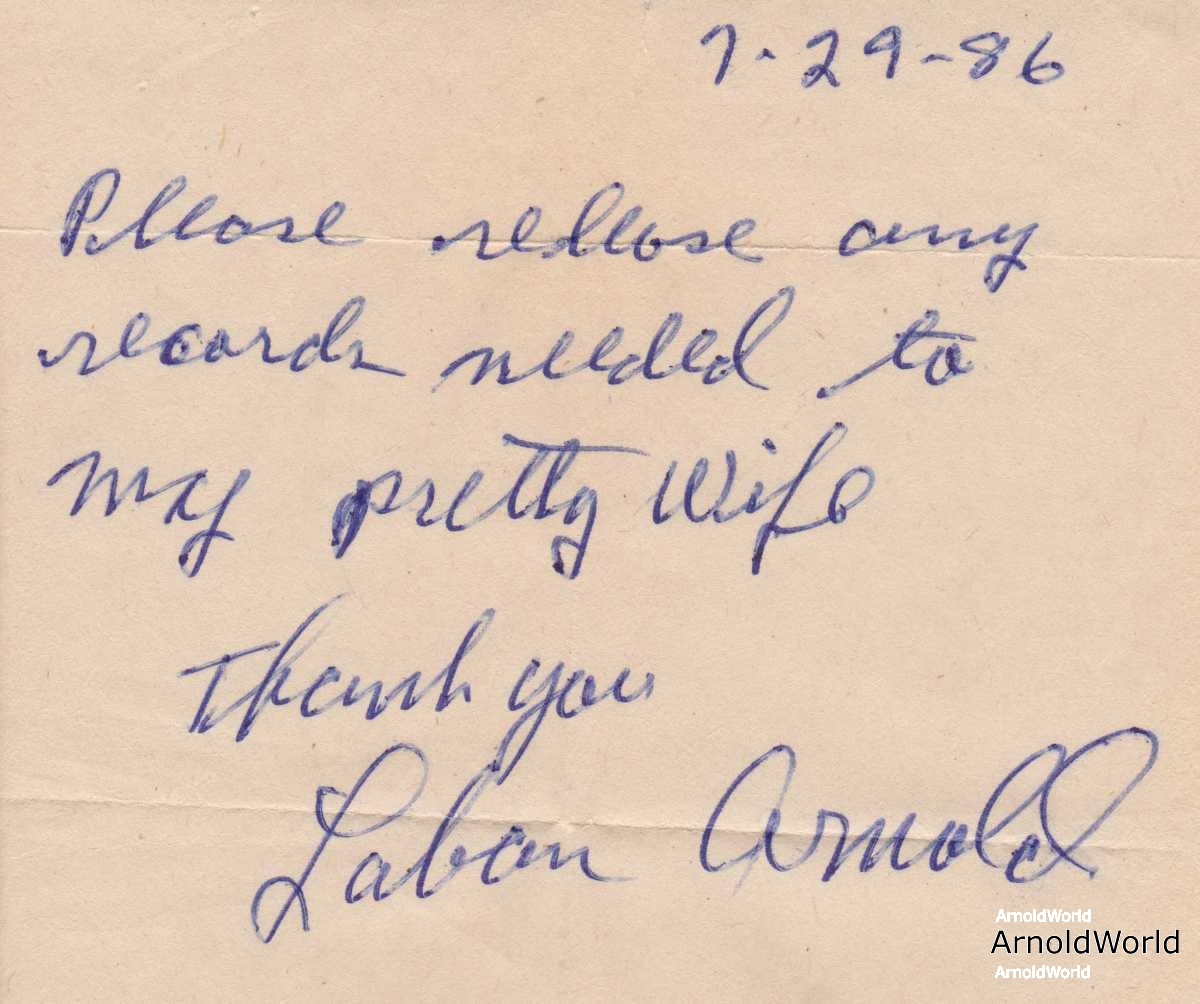 7-29-86
Please release any
records needed to
my pretty wife
Thank you
Laban Arnold
ArnoldWorld
ArnoldWorld
ArnoldWorld